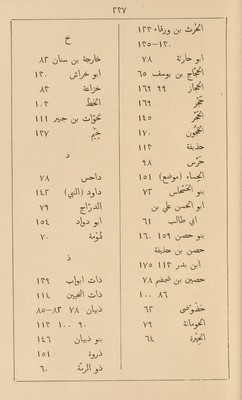 ٢٣٧
الحرث بن ورقاء ١٢٣
١٣٠–١٣٥
ابو حارثة ٧٨
الحجاج بن يوسف ٦٥
الحجاز ٩٩ ١٦٩
حجر ١٦٩
الحجر ١٤٥
الحجون ١٧٠
حذيفة ١١٣
حرس ٩٨
الحساء (موضع) ١٥١
بنو الحسحاس ٧٢
ابو الحسن علي بن
ابي طالب ٦١
بنو حصن ١٥٩ ١٦٠
حصن بن حذيفة
ابن بدر ١١٣ ١٧٥
حصين بن ضمضم ٧٨
٨٦ ١٠٠
حضوضى ٦٢
الحومانة ٧٩
الحيرة ٦٤
خ
خارجة بن سنان ٨٢
ابو خراش ١٣٠
خزاعة ٨٣
الخط ١٠٢
خوات بن جبير ١١١
خيم ١٢٧
د
داحس ٧٨
داود (النبي) ١٤٢
الدراج ٧٩
ابو دواد ١٥٤
دومة ٧٠
ذ
ذات ابواب ١٣٩
ذات النحيين ١١٤
ذبيان ٧٨ ٨٣–٨٥
٩٠ ١٠٠ ١١٣
بنو ذبيان ١٤٦
ذروة ١٥١
ذو الرمة ٦٠